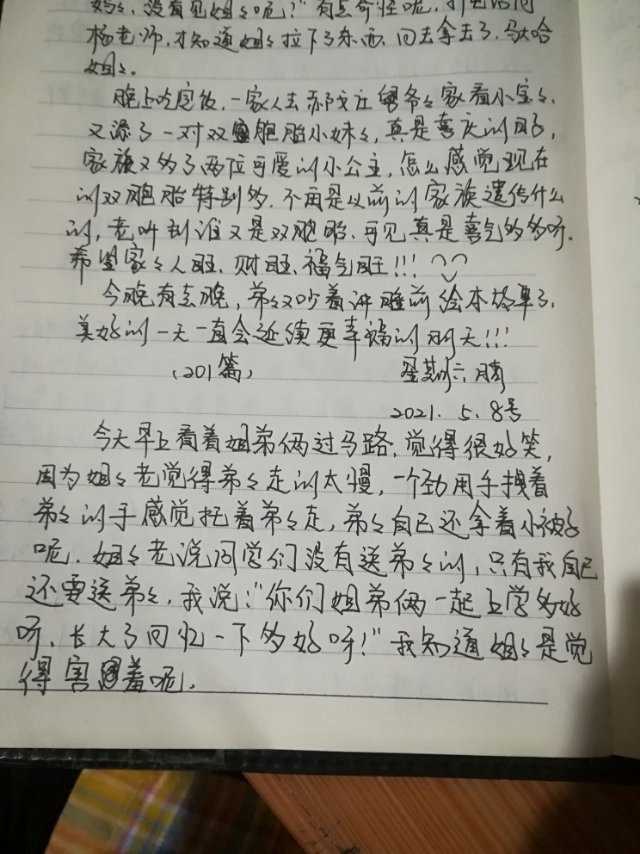 妈妈,没看见姐姐呢?"有点奇怪呢,打电话问
杨老师,才知道姐姐拉下了东西,回去拿去了,马大哈
姐姐。
晚上吃完饭,一家人去郝戈庄 爷爷家看小宝宝,
又添了一对双胞胎小妹妹,真是喜庆的日子,
家族又多了两位可爱的小公主,怎么感觉现在
的双胞胎特别多,不再是以前的家族遗传什么
的,老听到谁又是双胞胎,可见真是喜气多多呀。
希望家家人旺、财旺、福气旺!!!
今晚有些晚,弟弟又吵着讲睡前绘本故事了,
美好的一天一直会延续更幸福的明天!!!
(201篇) 星期六 晴
2021.5.8号
今天早上看着姐弟俩过马路,觉得很好笑,
因为姐姐老觉得弟弟走的太慢,一个劲用手拽着
弟弟的手感觉拖着弟弟走,弟弟自己还拿着小被子
呢,姐姐老说同学们没有送弟弟的,只有我自己
还要送弟弟,我说:"你们姐弟俩一起上学多好
呀,长大了回忆一下多好呀!"我知道姐姐是觉
得害羞呢。